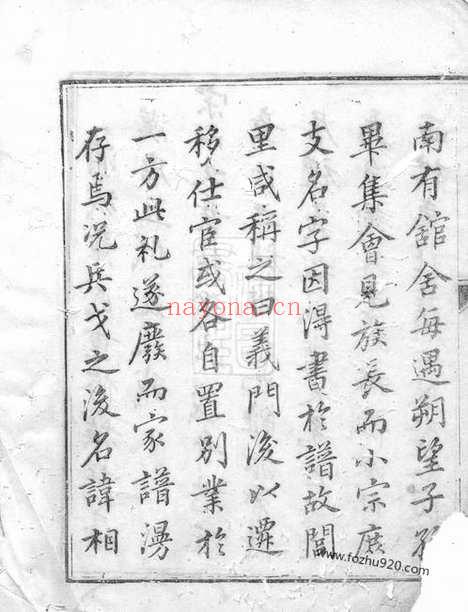 南有舘舍每遇朔望子孫
畢集會見族長而小宗庶
支名字因得書於譜故閭
里咸稱之曰義門後以遷
移仕宦或各自置別業於
一方此礼遂廢而家譜湯
存焉况兵戈之後名諱相
nayona.cn
www.fozhu920.com